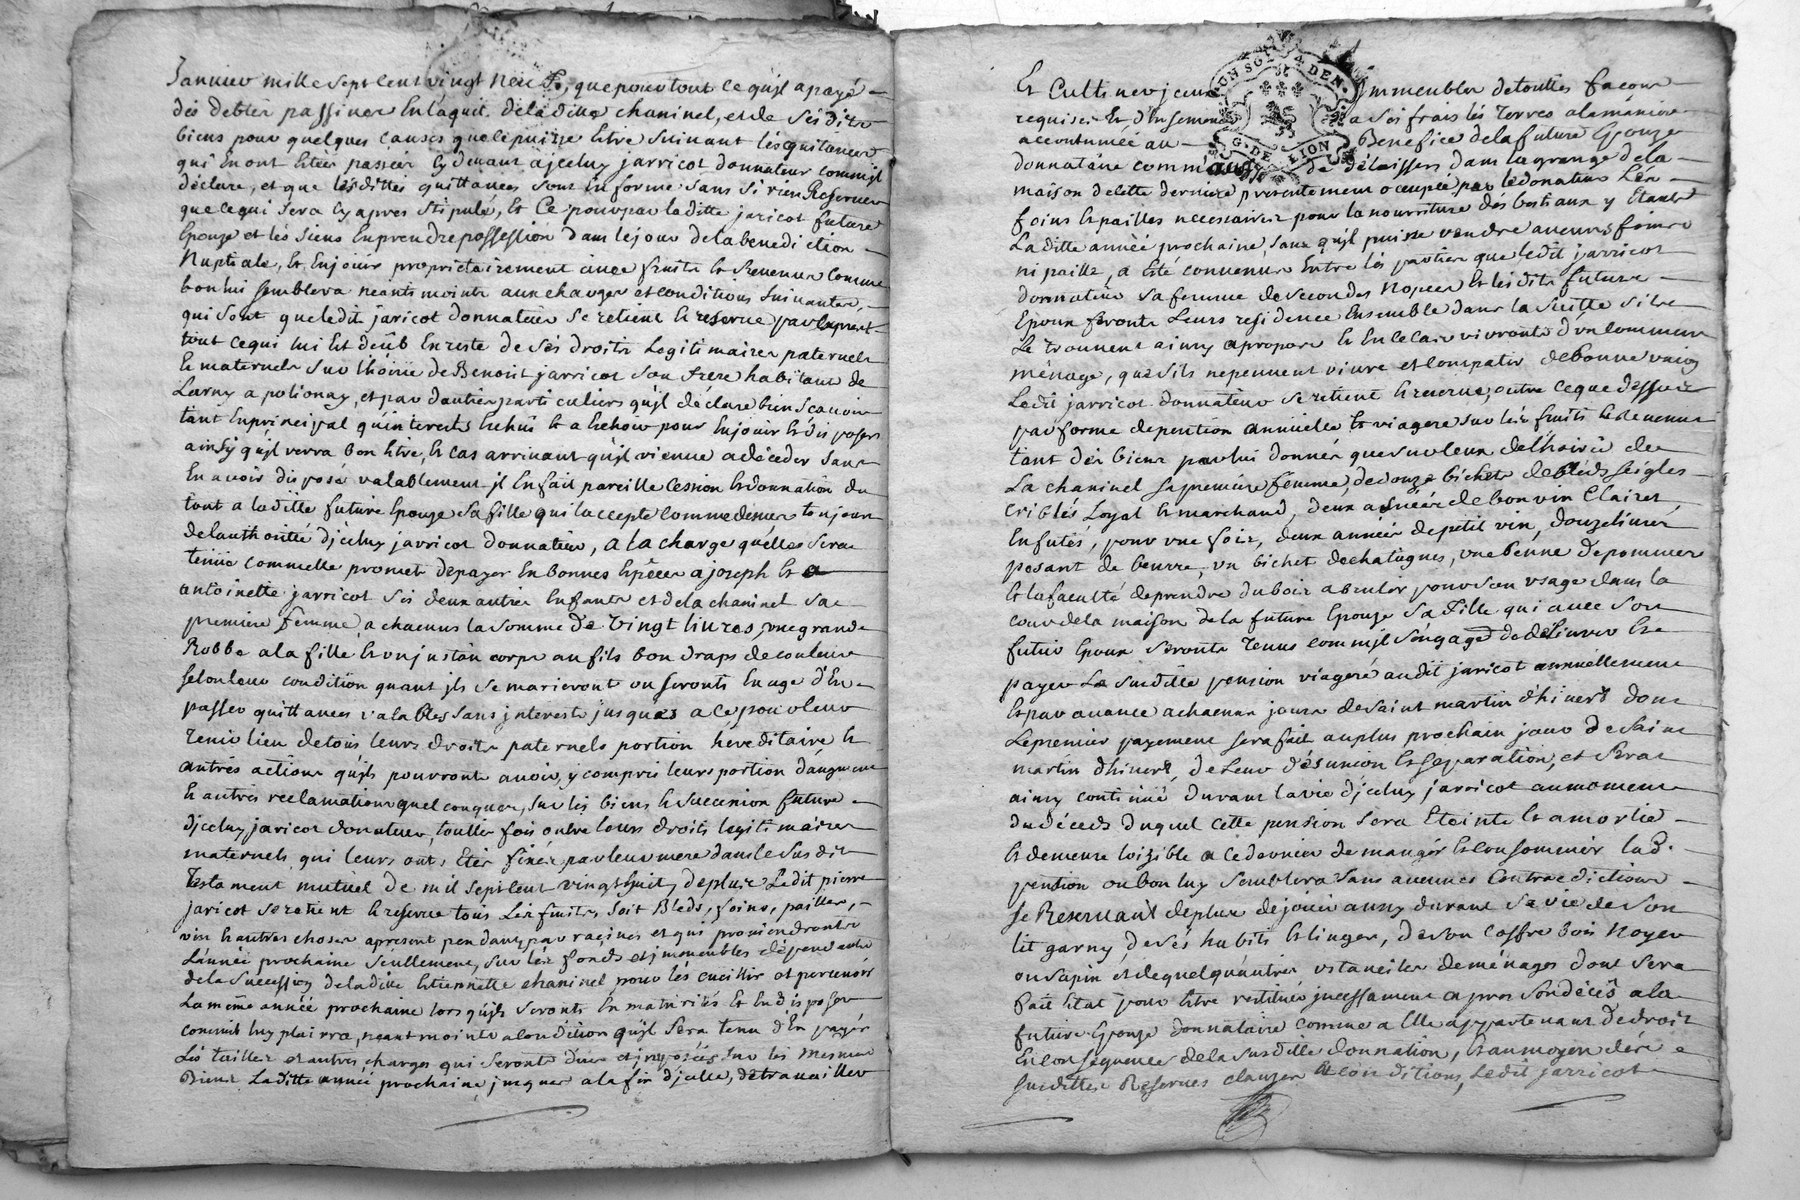 Janvier mille sept cent vingt neuf, que pour tout ce qu'jl a payé
des debtes passives en laquit de laditte chaninel, et de ses dits
biens pour quelques causes que le puisse estre suivant les quitances
qui en ont etées passées cy devant a jceluy jarricot donnateur comm'jl
declare, et que lesdittes quittances sont en forme sans s'i rien Reserver
que ce qui sera cy apres stipulé, Et Ce pour par laditte jaricot future
Epouze et lés siens en prendre possession dans le jour de la benediction
Nuptiale, Et en jouir proprietairement avec fruits et Revenus comme
bon lui semblera neantsmoints aux charges et conditions suivantes,
qui sont que ledit jaricot donnateur se retient et reserve par exprest
tout ce qui lui Est deub En reste de sés droits Legitimaires paternels
Et maternels sur l'hoirie de Benoist jarricot son frere habitant de
Larny a polionay, et par dautres particuliers qu'jl déclare bien scavoir
tant En principal qu'interests Echûs Et a Echoir pour En jouir Et disposer
ainsy qu'jl verra bon Estre, Et cas arrivant qu'jl vienne a déceder sans
En avoir disposé valablement jl En fait pareille Cession Et donnation du
tout a laditte future Epouze sa fille qui l'accepte comme dessus toujours
de l'authorité d'jceluy jarricot donnateur, a la charge quelles sera
tenüe comm'elle promet de payer En bonnes Espèces a joseph Et a
antoinette jarricot sés deux autres Enfants et de la chaninel sa
premiere femme, a chacuns la somme de vingt livres, une grande
Robbe a la fille Et un justan corps au fils bon draps de couleur
selon leur condition quant jls se marieront ou seronts En age d'En
passer quittances valables sans jnterests jusques a ce, pour leurs
tenir lieu de tous leurs droits paternels portion hereditaire et
autrés actions qu'jls pourronts avoir, y compris leurs portion daugment
Et autrés reclamations quelconques, sur lés biens Et succession future
d'jceluy jaricot donateur, touttes fois, outre leurs droits legitimaires
maternels, qui leurs onts Etés fixées par leur mere dans le susdit
Testament mutuel de mil sept cent vingt huit, de plus Ledit pierre
jaricot se retient Et reserve tous Lés fruits, soit Bleds, foins, pailles,
vin Et autres choses apresent pendants par racines et qui proviendronts
L'année prochaine seullement, sur lés fonds et jmmeubles dépendants
de la succession de laditte Estiennette chaninel pour lés cueillir et percevoir
La même année prochaine lors qu'jls seronts En maturités Et En disposer
comm'il luy plairra, neantmoints a condition qu'jl sera tenu d'En payér
Lés tailles et autres charges qui seronts dües et imposées sur lés mesmes
Biens Laditte année prochaine, jusques a la fin d'jcelle, de travailler
Et Cultiver jceux jmmeubles de touttes facons
requises Et d'Ensemencer a sés frais lés Terres a la maniere
accoutumée au Benefice de la future Epouze
donnataire comm'aussy de délaisser dans la grange de la
maison de cette derniere presentement occupée par le donateur Lés
foins Et pailles necessaires pour la nourriture des bestiaux y Etants
Laditte année prochaine sans qu'jl puisse vendre aucuns foins
ni paille, a Esté convenu Entre lés parties que ledit jarricot
donnateur sa femme de secondes Nopces Et lésdits future
Epoux feronts Leurs residence Ensemble dans la suitte s'ils
Le trouvent ainsy apropos Et En ce cas vivronts d'un commun
ménage, que s'ils ne peuvent vivre et compatir de bonne union
Ledit jarricot donnateur se retient Et reserve, outre ce que dessus
par forme de pention annüelle Et viagere sur lés fruits Et Revenus
tant dés biens par lui donnés que sur ceux de lhoirie de
La chaninel sa premiere femme, de douze bichets de bleds seigles
criblés Loyal Et marchand, deux asnées de bon vin Clairet
Enfutés, pour une fois, deux années de petit vin, douze livres
pesant de beurre, un bichet de chataignes, une benne de pommes
Et la faculté de prendre du bois a bruler pour son usage dans la
cour de la maison de la future Epouze sa fille qui avec son
futur Epoux seronts Tenus comm'jls s'engage de delivrer Et
payer La susditte pension viageré audit jaricot annüellement
Et par avance a chacuns jours de saint martin d'hivert dont
Le premier payement sera fait au plus prochain jour de saint
martin d'hivert, de Leur désunion Et separation, et sera
ainsy continüé durant la vie d'jceluy jarricot au moment
du déceds duquel cette pension sera Eteinte Et amortie
Et demeure loizible a ce dernier de manger Et consommer lad.
pension ou bon luy semblera sans aucunes Contradictions
se Reservant de plus de jouir aussy durant sa vie de son
lit garny, de sés habits Et linges, de son coffre bois Noyer
ou sapin et de quelqu'autres ustancilés de ménages dont sera
fait Etat pour Estre restitués jncessament apres son décés a la
future Epouze donnataire comme a Elle appartenants de droit
En consequence de la susditte donnation, Et au moyen dés
susdittes Reserves clauses Et conditions, Ledit jarricot
UN SOL 4 DEN.
G. DE LION